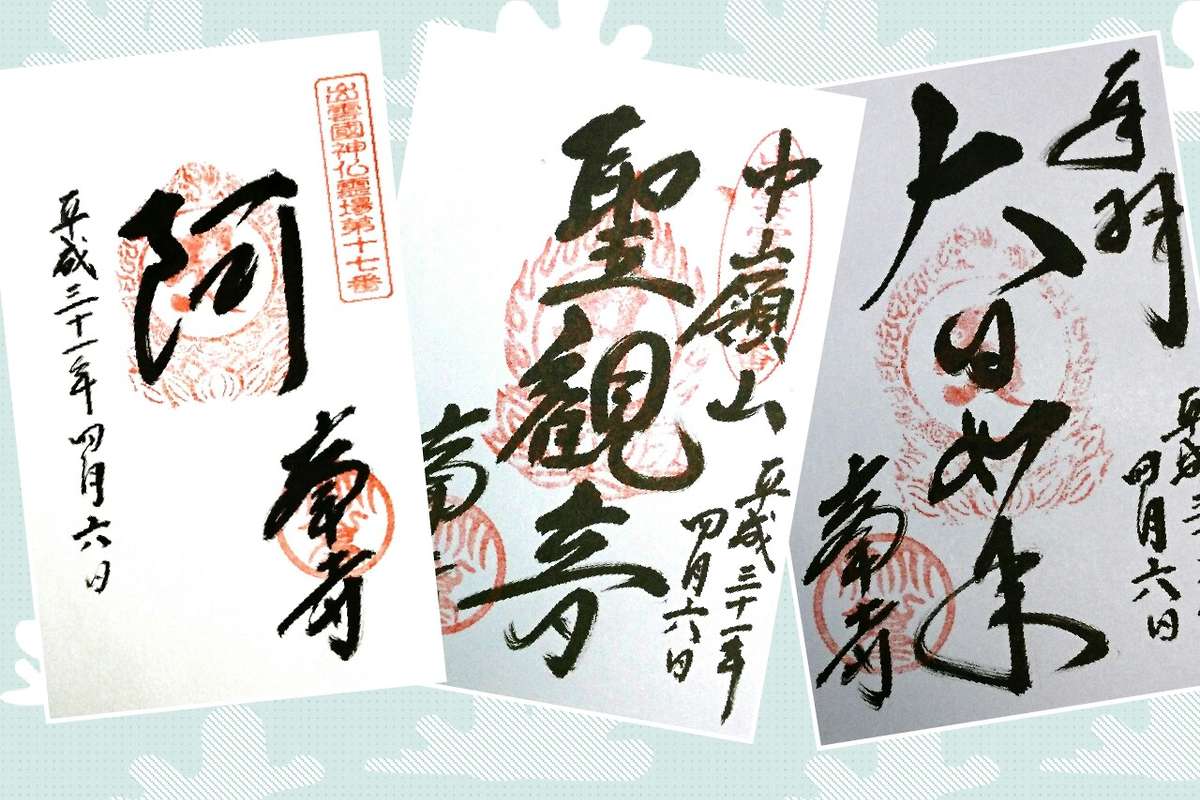 出雲國神仏霊場第十七番
阿
峯寺
平成三十一年四月六日
中嶺山
聖観音
平成三十一年
四月六日
峯
奉拝
大日如来
平成三
四月六日
峯寺